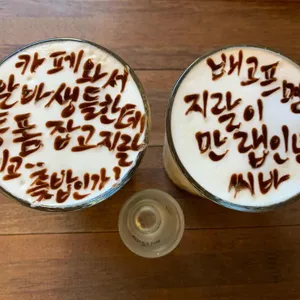 카페와서
알바생들한테
똥폼 잡고지랄
이고..
좆밥인가
배고프면
지랄이
만랩인
씨바